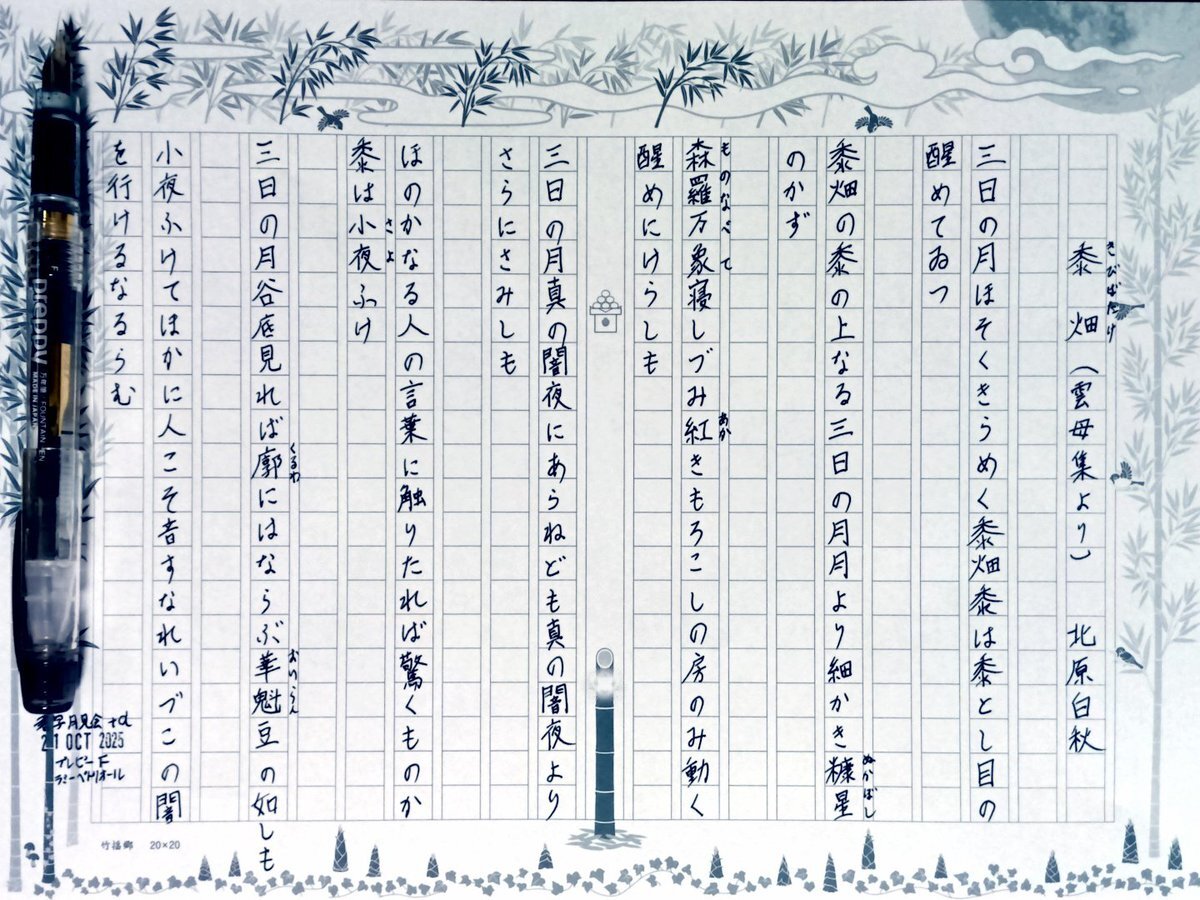 黍畑（雲母集より）　北原白秋
きびばたけ
三日の月ほそくきらめく黍畑黍は黍とし目の
醒めてゐつ
黍畑の黍の上なる三日の月月より細かき糠星
ぬかぼし
のかず
森羅万象寝しづみ紅きもろこしの房のみ動く
ものなべて
あか
醒めにけらしも
三日の月真の闇夜にあらねども真の闇夜より
さらにさみしも
ほのかなる人の言葉に触りたれば驚くものか
黍は小夜ふけ
さよ
三日の月谷底見れば廓にはならぶ華魁豆の如しも
くるわ
おいらん
小夜ふけてほかに人こそ音すなれいづこの闇
を行けるなるらむ
月見会 +α
21 OCT 2025
プレピー F
preppy
万年筆・FOUNTAIN PEN
MADE IN JAPAN
竹揺郷　20×20